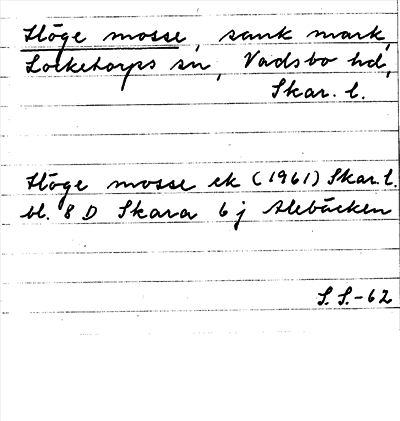 Höge mosse, sank mark,
Locketorps sn, Vadsbo hd,
Skar. l.
Höge mosse ek (1961) Skar. l.
bl. 8 D Skara 6 j Alebäcken
S. S.-62